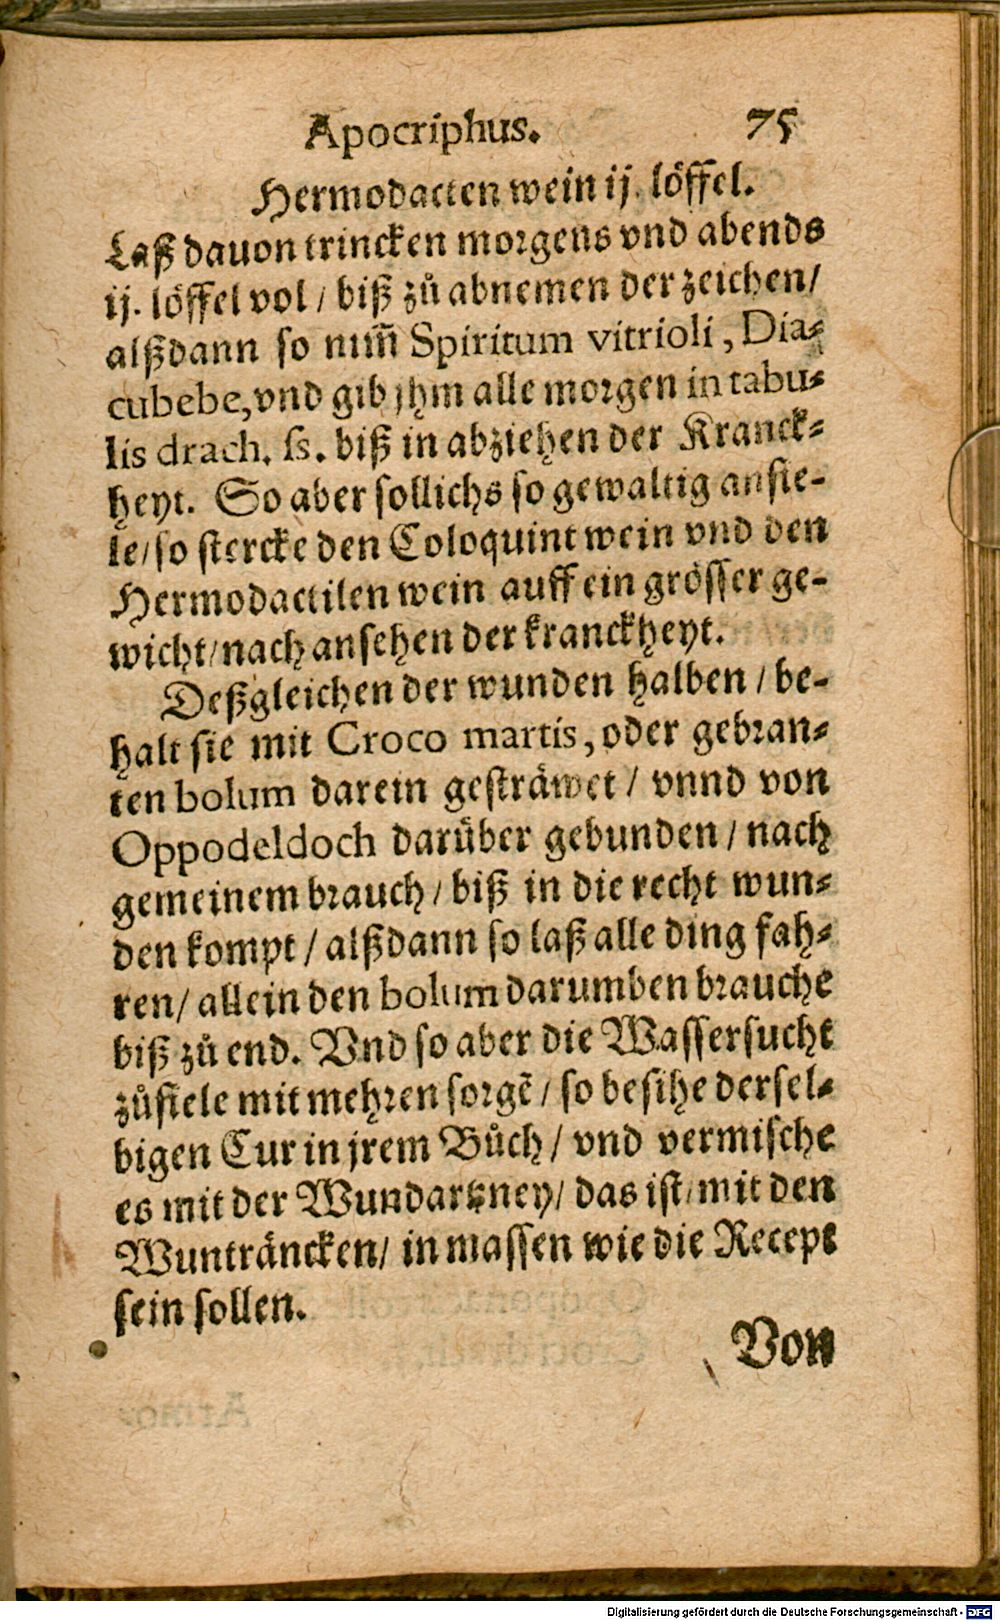 Apocriphus. 75
Hermodacten wein ij. löffel.
Laß dauon trincken morgens vnd abends
ij. löffel vol / biß zů abnemen der zeichen /
alßdann so nim̄ Spiritum vitrioli, Dia⸗
cubebe, vnd gib jhm alle morgen in tabu⸗
lis drach. ſs. biß in abziehen der Kranck⸗
heyt. So aber sollichs so gewaltig anfie-
le / so stercke den Coloquint wein vnd den
Hermodactilen wein auff ein grösser ge-
wicht / nach ansehen der kranckheyt.
Deßgleichen der wunden halben / be-
halt sie mit Croco martis, oder gebran⸗
ten bolum darein gesträwet / vnnd von
Oppodeldoch darüber gebunden / nach
gemeinem brauch / biß in die recht wun⸗
den kompt / alßdann so laß alle ding fah⸗
ren / allein den bolum darumben brauche
biß zů end. Vnd so aber die Wassersucht
zůfiele mit mehren sorgē / so besihe dersel⸗
bigen Cur in jrem Bůch / vnd vermische
es mit der Wundartzney / das ist / mit den
Wunträncken / in massen wie die Recept
sein sollen.
Von
Digitalisierung gefördert durch die Deutsche Forschungsgemeinschaft - DFG